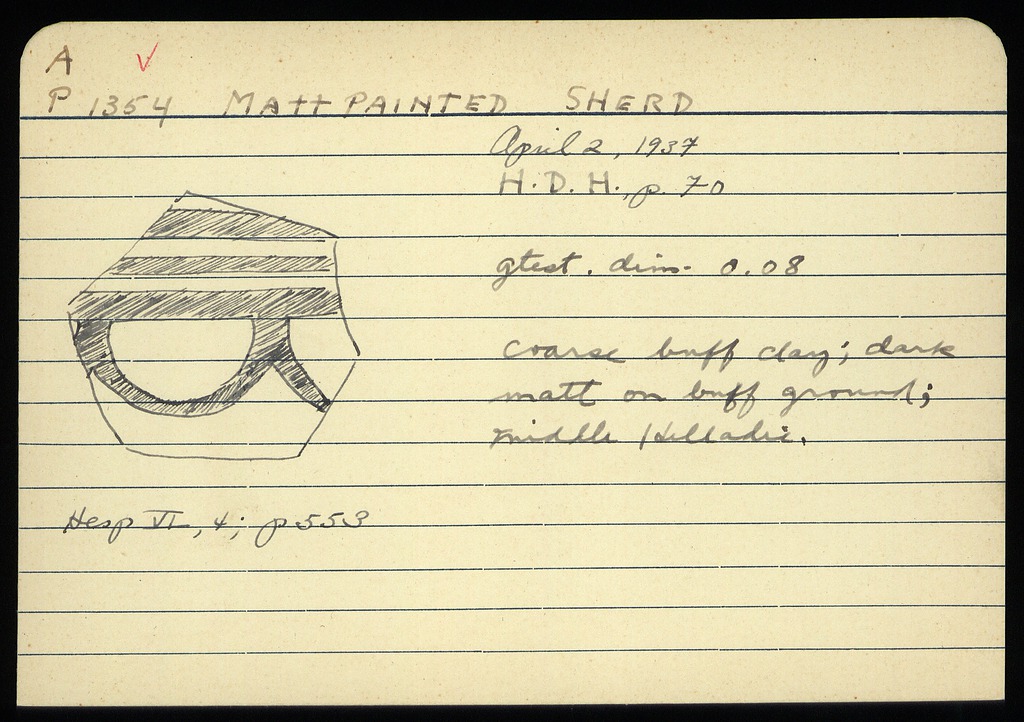 A
P 1354 MATT PAINTED SHERD
April 2, 1937
H. D. H., p. 70
gtest. dim. 0.08
coarse buff clay; dark
matt on buff ground;
middle Helladic.
Hesp VI, 4; p 553